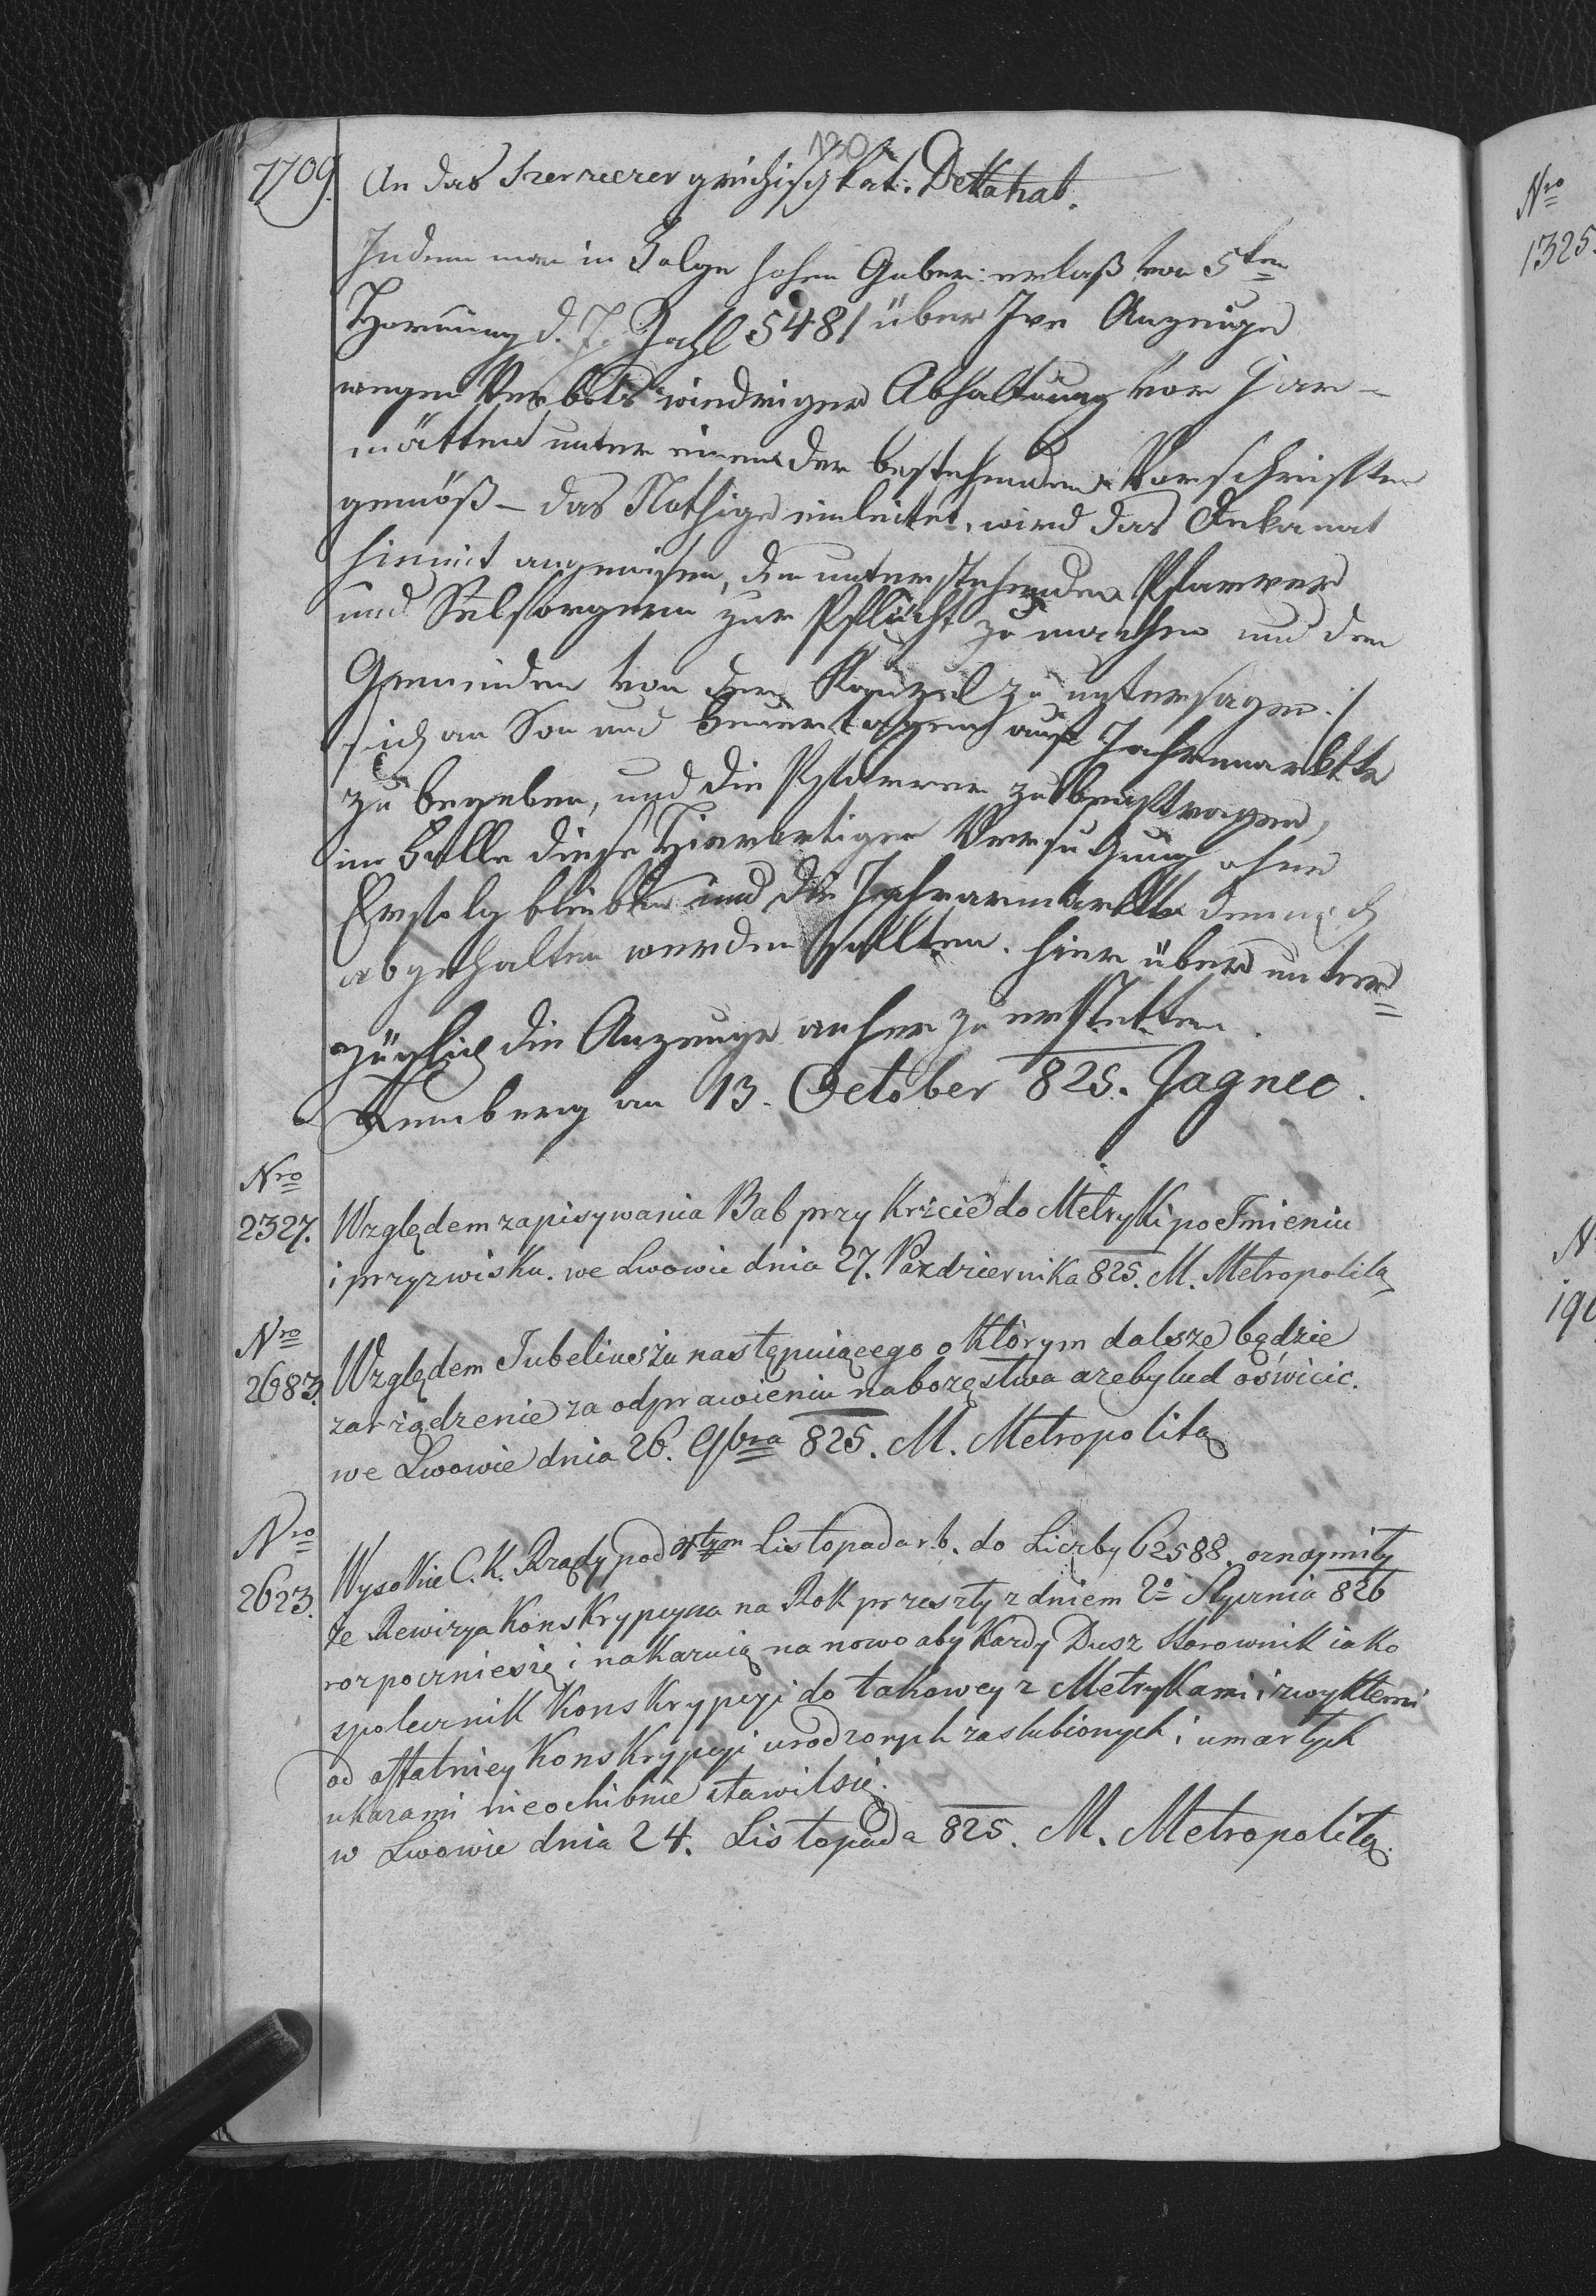 130
7709. An das Szerzecer griechisch kat: Dekanat.
Indem man in Folge hohen Guber: erlaß von 5ten
Hornung d. J. Zahl 5481 über Ire Anzeuge
wegen Verbots wiedriger Abhaltung von Jar-
mätten unter einem der bestehenden Vorschriften
gemäß – das Nothige einleitet, wird das Dekanat
hiemit angewisen, den unterstehenden Pfarrer
und Selsorgern zur Pflicht zu machen und den
Gemeinden von der Kanzel zu untersagen :/
sich an Son und Feuertagen auf Jahrmarkte
zu begeben, und die Pfarrer zu beauftragen,
im Falle diese Hierortigen Verfugung ohne
Erfolg blieben und die Jahrarmarkte dennoch
abgehalten werden sollten. hier über unver=
züglich die Anzeuge anher zu erstatten.
Lemberg am 13. October 825. Jagnec.
Nro
2327. Względem zapisywania Bab przy Krzcie do Metryki po Imieniu
i przyzwisku. we Lwowie dnia 27. Pazdziernika 825. M. Metropolita
Nro
2683. Względem Jubeliuszu następuiącego o którym dalsze będzie
zarządzenie za odprawieniu nabozęstwa azeby lud oświcic.
we Lwowie dnia 26. 9bra 825. M. Metropolita
Nro
2623. Wysokie C. K. Rządy pod tym Listopada r.b. do Liczby 62588. oznaymiły
że Rewizya Konskrypcyna na Rok przeszły z dniem 2o Stycznia 826
rozpoczniesię i nakazuią na nowo aby Kazdy Dusz Starownik iako
spolecznik Konskrypcyi do takowey z Metrykami i zwykłemi
od ostatniey Konskrypcyi urodzonych zaslubionych i umarłych
ukazami nieochibnie stawilsię.
w Lwowie dnia 24. Listopada 825. M. Metropolita.
Nro
1325.